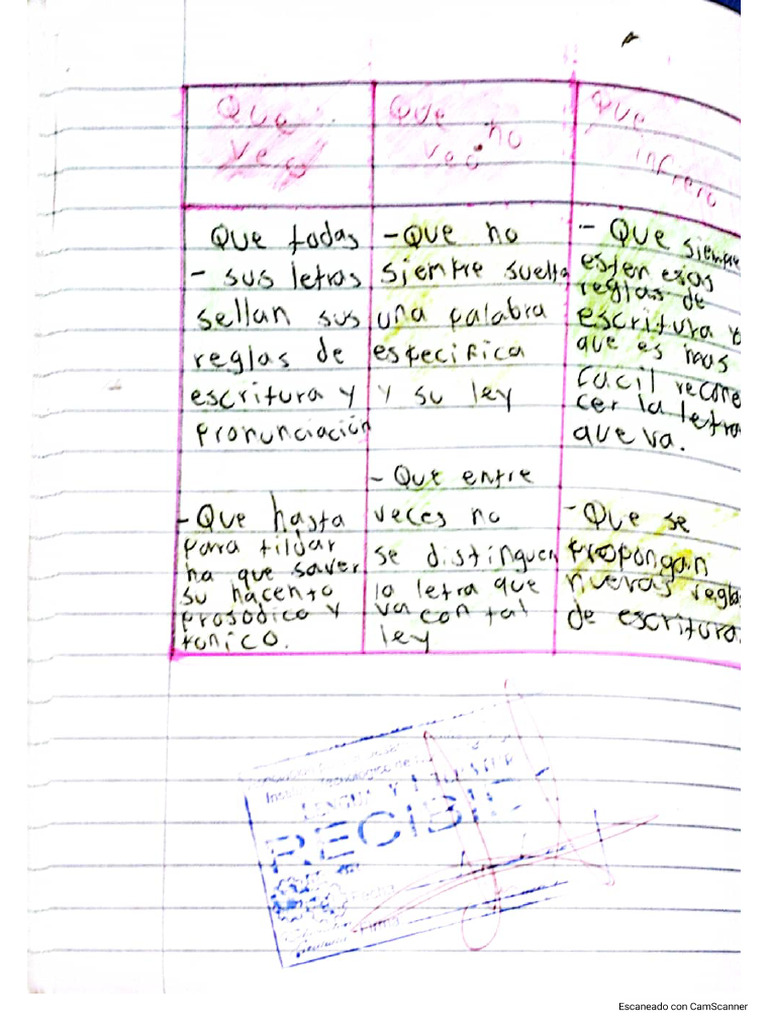 Que
Veo
Que no
veo
Que
infiero
Que todas
- sus letras
sellan sus
reglas de
escritura y
pronunciación
- Que hasta
para tildar
ha que saver
su hacento
prosódico y
tonico.
- Que no
siempre suelta
una palabra
especifica
y su ley
- Que entre
veces no
se distinguen
la letra que
va con tal
ley
- Que siempre
esten esas
reglas de
escritura y
que es mas
facil recono
cer la letra
que va.
- Que se
propongan
nuevas regla
de escritura.
Instituto Tecnológico de
LENGUA Y LITERATURA
RECIBI
Fecha
Firma
Escaneado con CamScanner